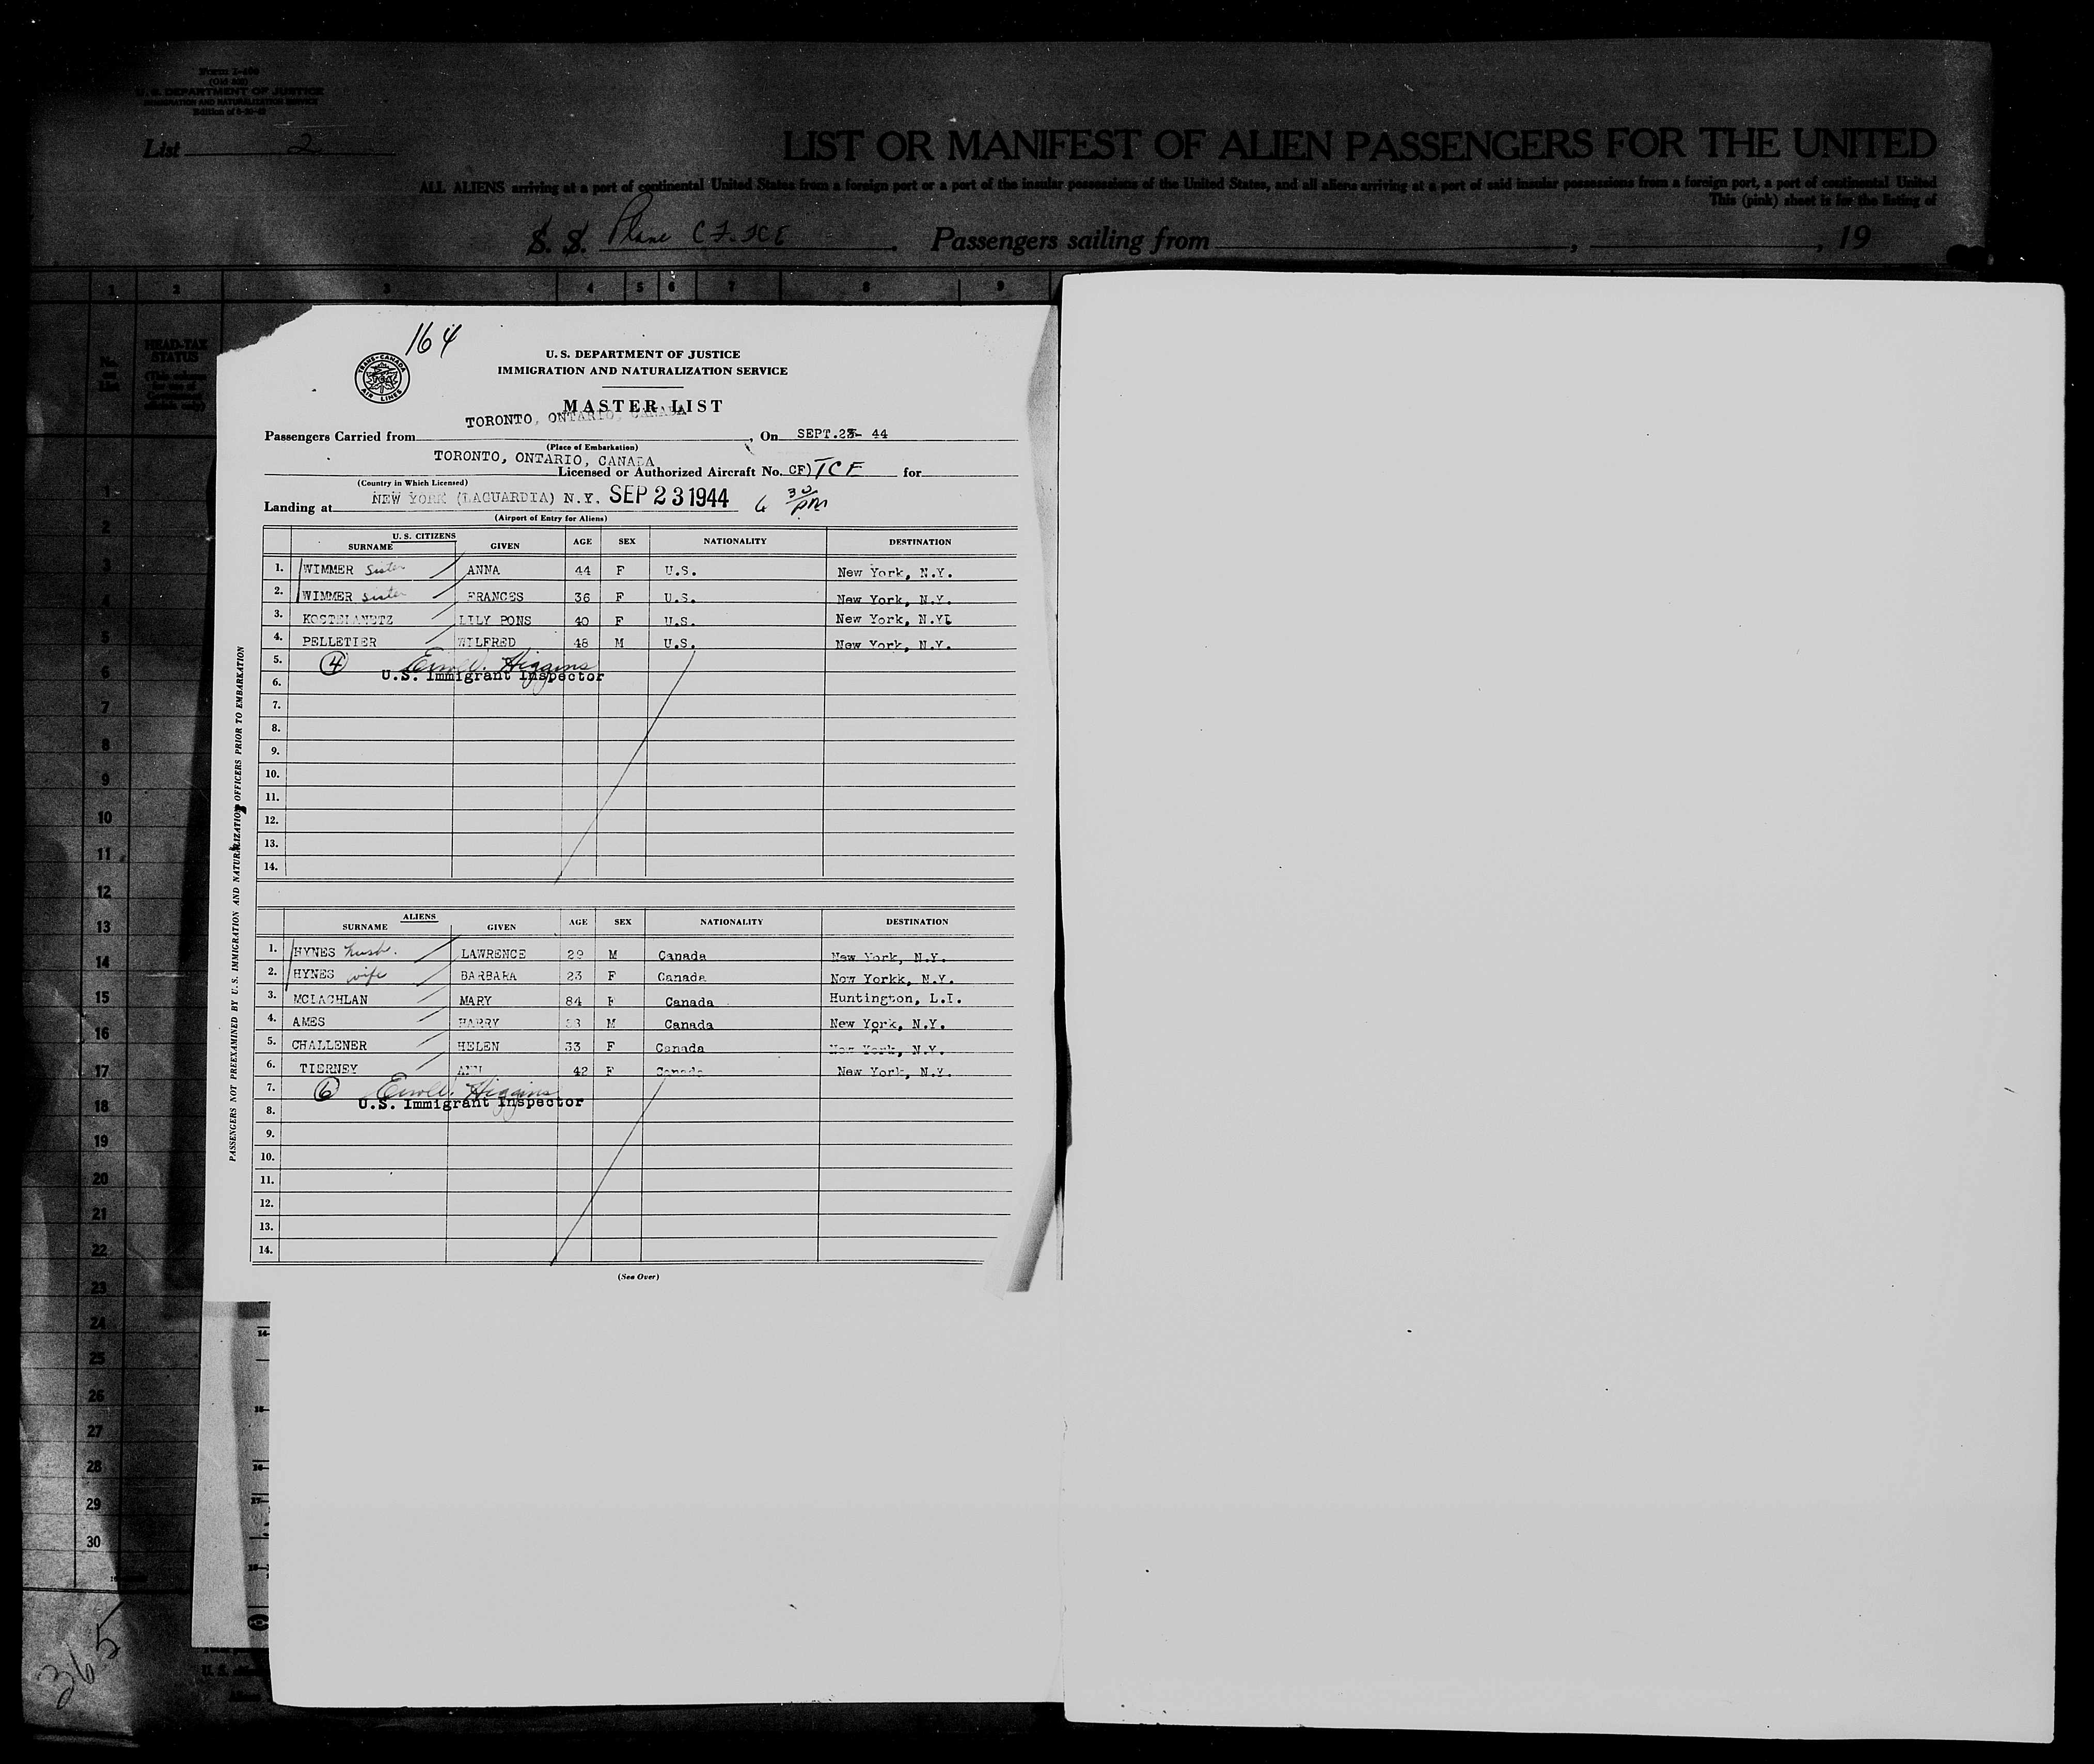 Form I-466
(Old 500)
U. S. DEPARTMENT OF JUSTICE
IMMIGRATION AND NATURALIZATION SERVICE
List 2
LIST OR MANIFEST OF ALIEN PASSENGERS FOR THE UNITED
ALL ALIENS arriving at a port of continental United States from a foreign port or a port of the insular possessions of the United States, and all aliens arriving at a port of said insular possessions from a foreign port, a port of continental United
This (pink) sheet is for the listing of
S. S. Plane CF-TCE . Passengers sailing from , , 19
1 2 3 4 5 6 7 8 9
HEAD-TAX
STATUS
164
TRANS-CANADA AIR LINES
U. S. DEPARTMENT OF JUSTICE
IMMIGRATION AND NATURALIZATION SERVICE
MASTER LIST
TORONTO, ONTARIO, CANADA
Passengers Carried from , On SEPT.23- 44
(Place of Embarkation)
TORONTO, ONTARIO, CANADA
Licensed or Authorized Aircraft No. CF) TCE for
(Country in Which Licensed)
NEW YORK (LAGUARDIA) N.Y. SEP 23 1944 6 30 PM
Landing at
(Airport of Entry for Aliens)
U. S. CITIZENS
SURNAME GIVEN AGE SEX NATIONALITY DESTINATION
1. WIMMER sister ANNA 44 F U.S. New York, N.Y.
2. WIMMER sister FRANCES 36 F U.S. New York, N.Y.
3. KOSTELANETZ LILY PONS 40 F U.S. New York, N.Y.
4. PELLETIER WILFRED 48 M U.S. New York, N.Y.
5. 4 Higgins
6. U.S. Immigrant Inspector
7.
8.
9.
10.
11.
12.
13.
14.
ALIENS
SURNAME GIVEN AGE SEX NATIONALITY DESTINATION
1. HYNES husb. LAWRENCE 29 M Canada New York, N.Y.
2. HYNES wife BARBARA 23 F Canada New Yorkk, N.Y.
3. MCLACHLAN MARY 84 F Canada Huntington, L.I.
4. AMES HARRY M Canada New York, N.Y.
5. CHALLENER HELEN 33 F Canada New York, N.Y.
6. TIERNEY ANN 42 F Canada New York, N.Y.
7. 6 Higgins
8. U.S. Immigrant Inspector
9.
10.
11.
12.
13.
14.
(See Over)
PASSENGERS NOT PREEXAMINED BY U.S. IMMIGRATION AND NATURALIZATION OFFICERS PRIOR TO EMBARKATION
1
2
3
4
5
6
7
8
9
10
11
12
13
14
15
16
17
18
19
20
21
22
23
24
25
26
27
28
29
30
365